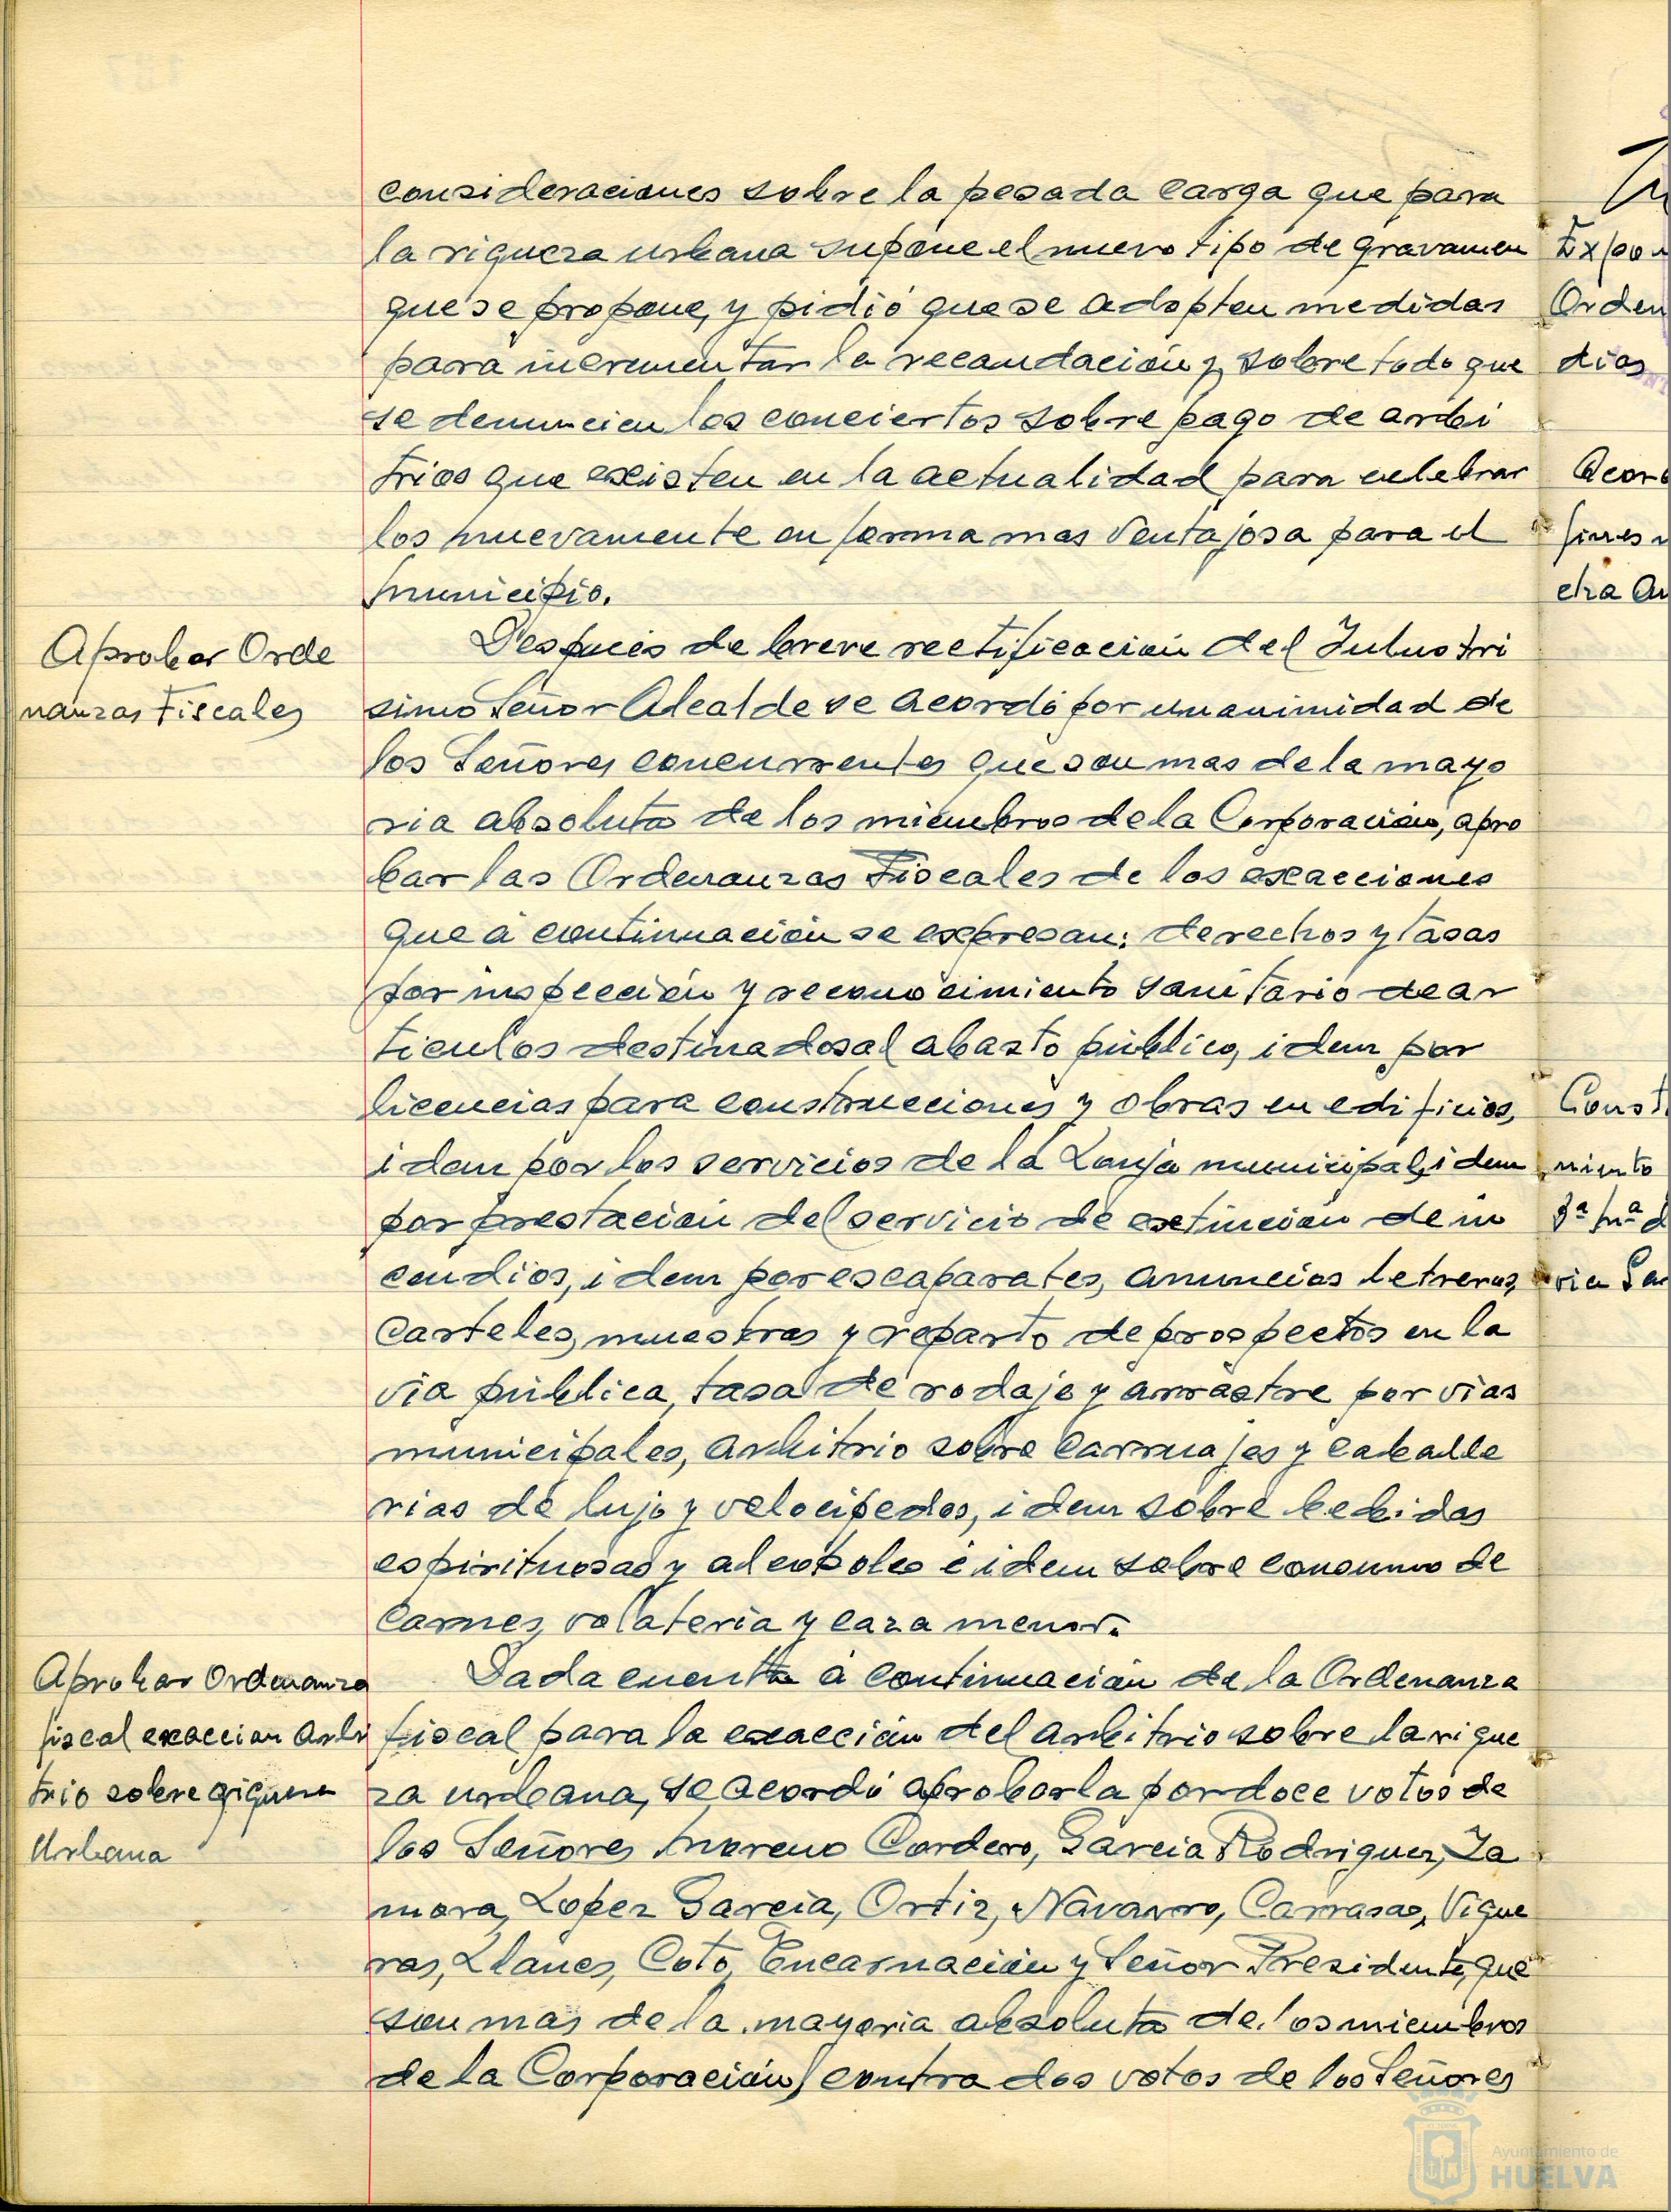 consideraciones sobre la pesada carga que para
la riqueza urbana supone el nuevo tipo de gravamen
que se propone, y pidió que se adopten medidas
para incrementar la recaudación y sobre todo que
se denuncien los conciertos sobre pago de arbi
trios que existen en la actualidad para celebrar
los nuevamente en forma mas ventajosa para el
municipio.
Aprobar Orde
nanzas Fiscales
Después de breve rectificación del Ilustri
simo Señor Alcalde se acordó por unanimidad de
los Señores concurrentes que son mas de la mayo
ria absoluta de los miembros de la Corporación, apro
bar las Ordenanzas Fiscales de las exacciones
que á continuación se expresan: derechos y tasas
por inspección y reconocimiento sanitario de ar
ticulos destinados al abasto público, idem por
licencias para construcciones y obras en edificios,
idem por los servicios de la Lonja municipal, idem
por prestación del servicio de extinción de in
cendios, idem por escaparates, anuncios letreros,
carteles, muestras y reparto de prospectos en la
via pública, tasa de rodaje y arrastre por vias
municipales, arbitrio sobre carruajes y caballe
rias de lujo y velocipedos, idem sobre bebidas
espirituosas y alcoholes é idem sobre consumo de
carnes, volateria y caza menor.
Aprobar Ordenanza
fiscal exaccion arbi
trio sobre riqueza
Urbana
Dada cuenta á continuación de la Ordenanza
fiscal para la exacción del arbitrio sobre la rique
za urbana, se acordó aprobarla por doce votos de
los Señores Moreno Cordero, Garcia Rodriguez, Za
mora, Lopez Garcia, Ortiz, Navarro, Carrasco, Vigue
ras, Llanes, Coto, Encarnación y Señor Presidente, que
son mas de la mayoria absoluta de los miembros
de la Corporación, contra dos votos de los Señores
Orden
dios
fines
cha
Const
miento
Ayuntamiento de
HUELVA